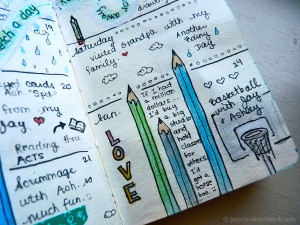 etch a day
Saturday
visited Grandpa with my
family.
Another
rainy
day
cards
from my
Jay
Reading
ACTS
thru
24
Scrimmage
with Ash..so
much fun.
Sun.
LOVE
If I had
a million
dollars...
I'd buy
a big
studio
and hold
classes
for
others.
I'd
get a
horse
too.
29
basketball
with Jay
+ Ashley
© jennyw.sketchbook.com